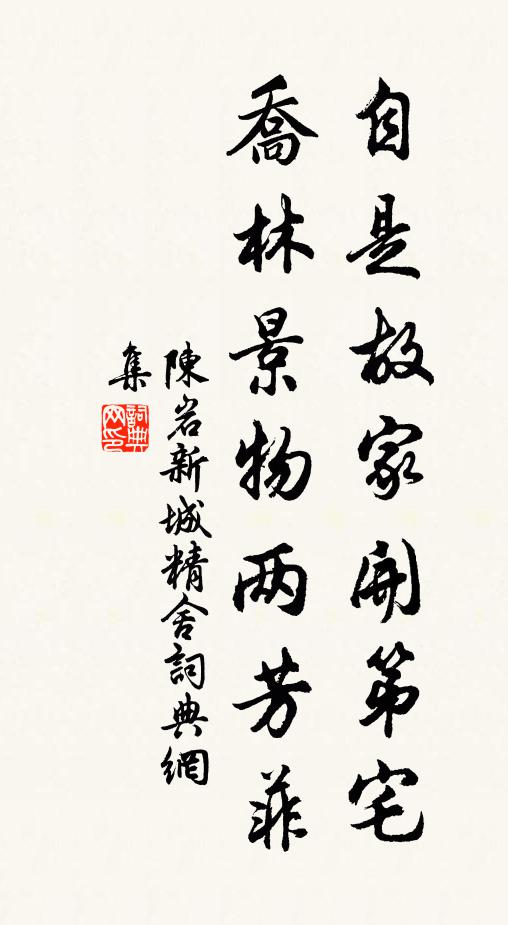 自是故家開第宅
喬林景物两芳菲
陳岩新城精舍詞典網
集
詞典
网印